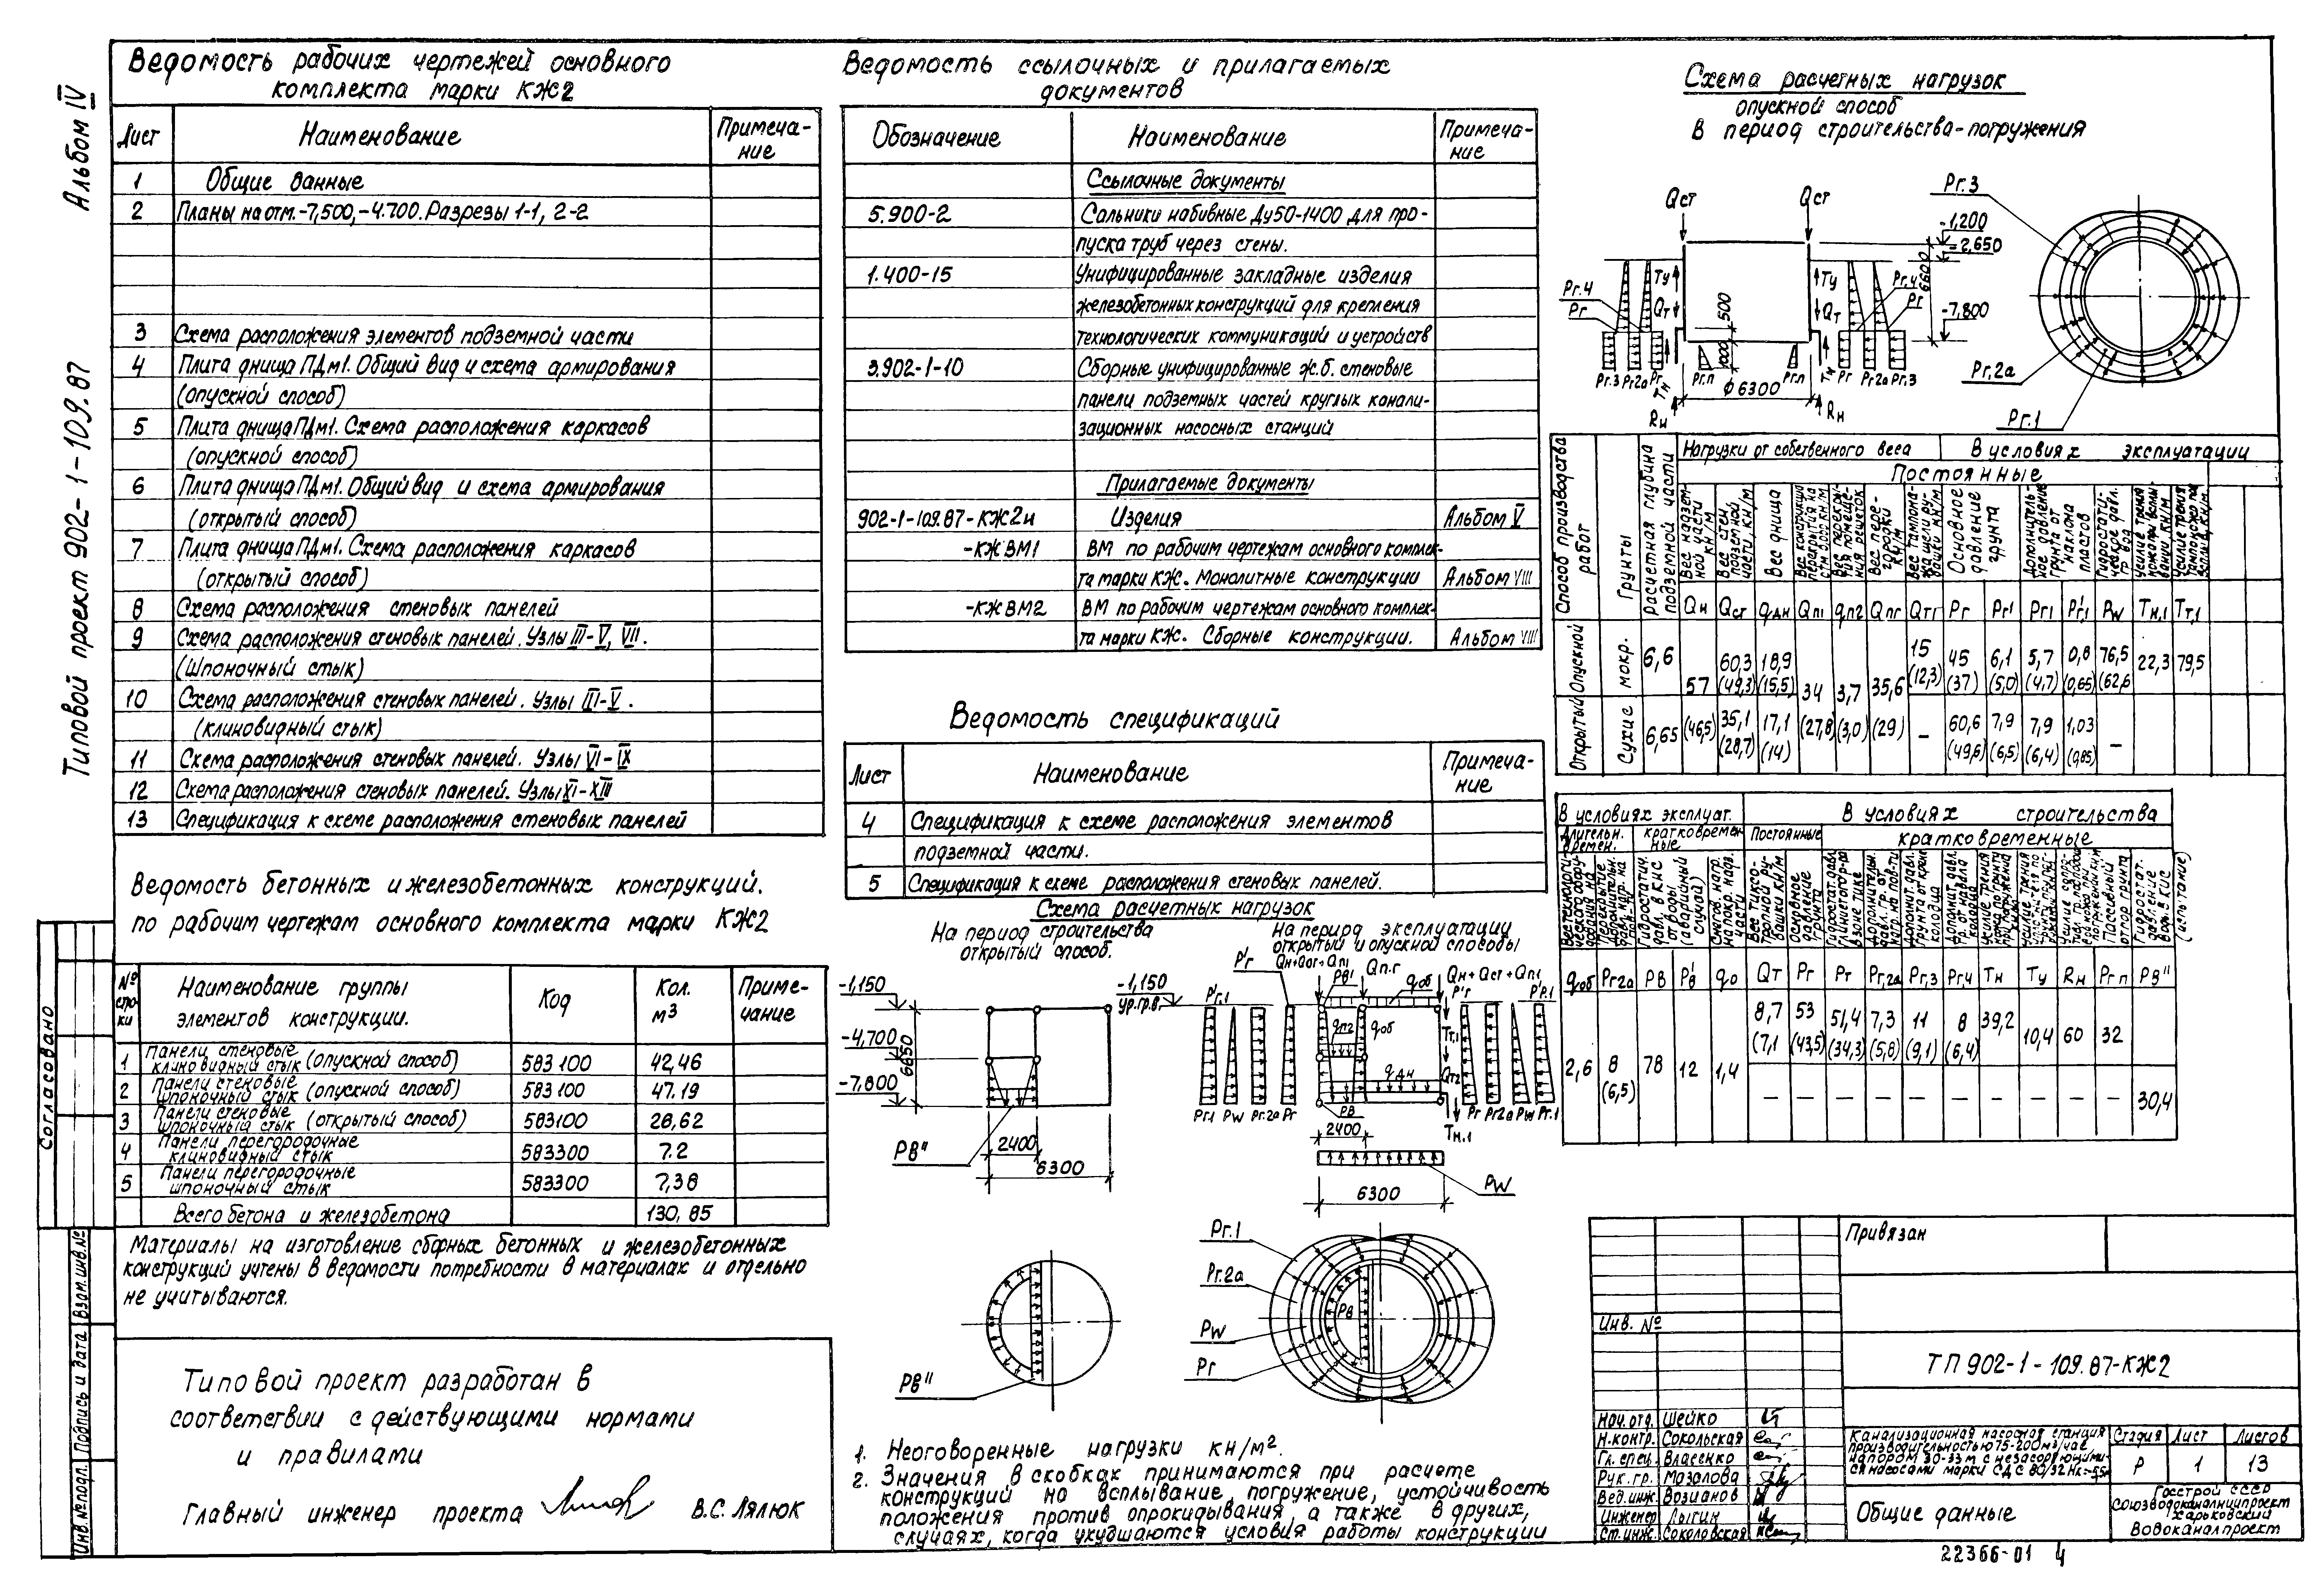 Альбом IV
Типовой проект 902-1-109.87
Ведомость рабочих чертежей основного
комплекта марки КЖ2
Лист Наименование Примеча-
ние
1 Общие данные
2 Планы на отм.-7,500,-4.700. Разрезы 1-1, 2-2
3 Схема расположения элементов подземной части
4 Плита днища ПДм1. Общий вид и схема армирования
(опускной способ)
5 Плита днища ПДм1. Схема расположения каркасов
(опускной способ)
6 Плита днища ПДм1. Общий вид и схема армирования
(открытый способ)
7 Плита днища ПДм1. Схема расположения каркасов
(открытый способ)
8 Схема расположения стеновых панелей
9 Схема расположения стеновых панелей. Узлы III-V, VII.
(Шпоночный стык)
10 Схема расположения стеновых панелей. Узлы III-V.
(клиновидный стык)
11 Схема расположения стеновых панелей. Узлы VI-IX
12 Схема расположения стеновых панелей. Узлы XI-XIII
13 Спецификация к схеме расположения стеновых панелей
Ведомость бетонных и железобетонных конструкций.
по рабочим чертежам основного комплекта марки КЖ2
№ стро-ки Наименование группы элементов конструкции. Код Кол. м3 Приме-чание
1 Панели стеновые клиновидный стык (опускной способ) 583100 42,46
2 Панели стеновые шпоночный стык (опускной способ) 583100 47.19
3 Панели стеновые шпоночный стык (открытый способ) 583100 28,62
4 Панели перегородочные клиновидный стык 583300 7.2
5 Панели перегородочные шпоночный стык 583300 7,38
Всего бетона и железобетона 130,85
Материалы на изготовление сборных бетонных и железобетонных
конструкций учтены в ведомости потребности в материалах и отдельно
не учитываются.
Типовой проект разработан в
соответствии с действующими нормами
и правилами
Главный инженер проекта В.С. Лялюк
Согласовано
Инв.№ подл. Подпись и дата Взам.инв.№
Ведомость ссылочных и прилагаемых
документов
Обозначение Наименование Примеча-
ние
Ссылочные документы
5.900-2 Сальники набивные Ду50-1400 для про-
пуска труб через стены.
1.400-15 Унифицированные закладные изделия
железобетонных конструкций для крепления
технологических коммуникаций и устройств
3.902-1-10 Сборные унифицированные ж.б. стеновые
панели подземных частей круглых канали-
зационных насосных станций
Прилагаемые документы
902-1-109.87-КЖ2и Изделия Альбом V
-КЖВМ1 ВМ по рабочим чертежам основного комплек-
та марки КЖ. Монолитные конструкции Альбом VIII
-КЖВМ2 ВМ по рабочим чертежам основного комплек-
та марки КЖ. Сборные конструкции. Альбом VIII
Ведомость спецификаций
Лист Наименование Примеча-
ние
4 Спецификация к схеме расположения элементов
подземной части.
5 Спецификация к схеме расположения стеновых панелей.
Схема расчетных нагрузок
На период строительства
открытый способ.
На период эксплуатации
открытый и опускной способы
-1,150
-4,700
-7.800
6650
Рв"
2400
6300
-1,150
ур.гр.в.
Р'г
Qн+Qст+Qп1
Рв'
Qп.г
qоб
Qн+Qст+Qп1
Р'г.1
Р'г
Р'г.1
qп2
qоб
Тт.1
qдн
Qт2
Рг.1 Рw Рг.2а Рг
Рв
Рг Рг2а Рw Рг.1
2400
Тн.1
Рw
6300
Рв"
Рг.1
Рг.2а
Рw
Рг
Рв
1. Неоговоренные нагрузки кн/м2.
2. Значения в скобках принимаются при расчете
конструкций на всплывание, погружение, устойчивость
положения против опрокидывания, а также в других,
случаях, когда ухудшаются условия работы конструкции
Схема расчетных нагрузок
опускной способ
В период строительства-погружения
Qст Qст
-1,200
-2,650
-7,800
6600
500
1000
Ту Ту
Qт Qт
Рг.4 Рг
Рг.4 Рг
Рг.3 Рг2а Рг Рг.п Рг.п Рг Рг2а Рг.3
Тн Тн
ϕ6300
Rн Rн
Рг.3
Рг.2а
Рг.1
Способ производства работ Грунты Расчетная глубина подземной части
Нагрузки от собственного веса В условиях эксплуатации
Постоянные
Вес надзем-ной части кн/м
Вес стен подземной части, кн/м
Вес днища
Вес пере-городки кн/м
Основное давление грунта
Qн Qст qдн Qп1 qп2 Qпг Qт1 Рг Рг' Рг1 Р'г,1 Рw Тн,1 Тт,1
Опускной мокр. 6,6 57 60,3 (49,3) 18,9 (15,5) 34 3,7 35,6 15 (12,3) 45 (37) 6,1 (5,0) 5,7 (4,7) 0,8 (0,65) 76,5 (62,6 22,3 79,5
Открытый Сухие 6,65 (46,5) 35,1 (28,7) 17,1 (14) (27,8) (3,0) (29) – 60,6 (49,6) 7,9 (6,5) 7,9 (6,4) 1,03 (0,85) –
В условиях эксплуат. В условиях строительства
Длительн. времен. кратковремен-ные Постоянные кратковременные
Основное давление грунта
Пассивный отпор грунта
(испытание)
qоб Рг2а Рв Р'в qо Qт Рг Рт Рг,2а Рг,3 Рг,4 Тн Ту Rн Рг п Рв"
2,6 8 (6,5) 78 12 1,4 8,7 (7,1 53 (43,5) 51,4 (34,3) 7,3 (5,8) 11 (9,1) 8 (6,4) 39,2 10,4 60 32
– – – – – – – – – – 30,4
Привязан
Инв. №
ТП 902-1-109.87-КЖ2
Нач.отд. Шейко
Н.контр. Сокольская
Гл. спец. Власенко
Рук.гр. Мозалова
Вед.инж. Возианов
Инженер Лыгин
Ст.инж. Соколовская
Канализационная насосная станция
производительностью 75-200м3/час,
напором 30-33м с незасоряющими-
ся насосами марки СДС 80/32
Стадия Лист Листов
Р 1 13
Общие данные
Госстрой СССР
Союзводоканалниипроект
Харьковский
Водоканалпроект
22366-01 4